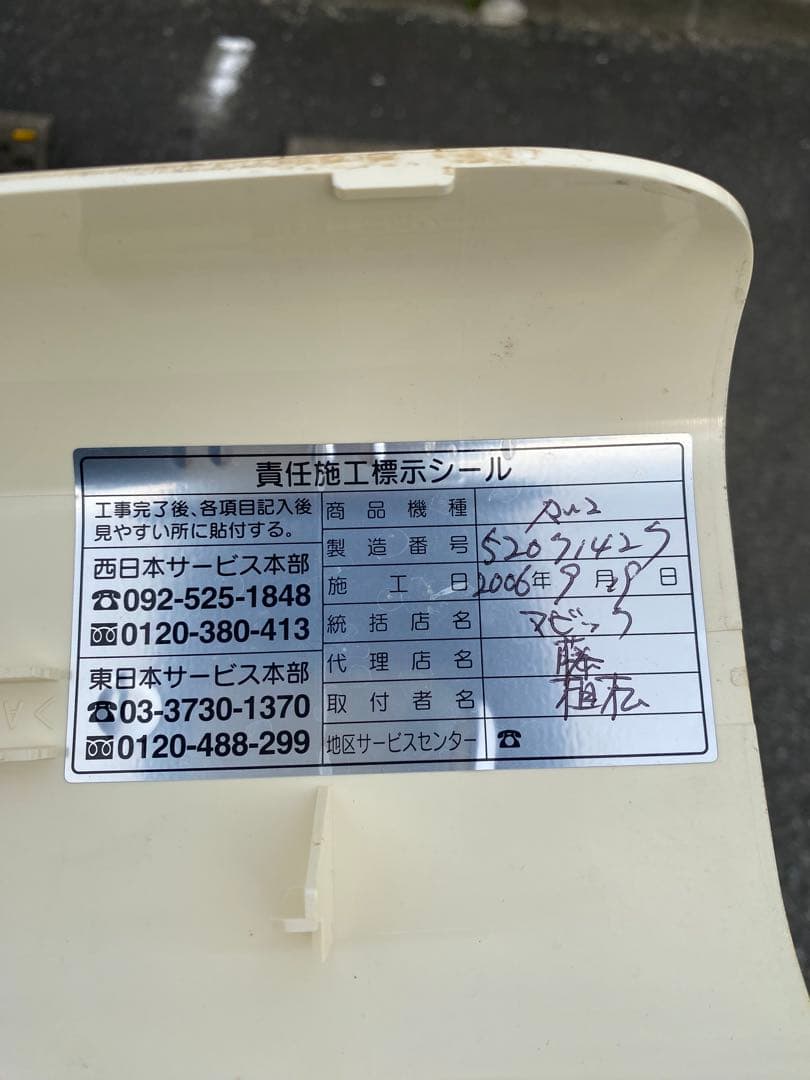 責任施工標示シール
工事完了後、各項目記入後
見やすい所に貼付する。
西日本サービス本部
☎092-525-1848
0120-380-413
東日本サービス本部
☎03-3730-1370
0120-488-299
商品機種
製造番号 52071427
施工日 2006年9月9日
統括店名 マビック
代理店名 藤
取付者名 植松
地区サービスセンター ☎